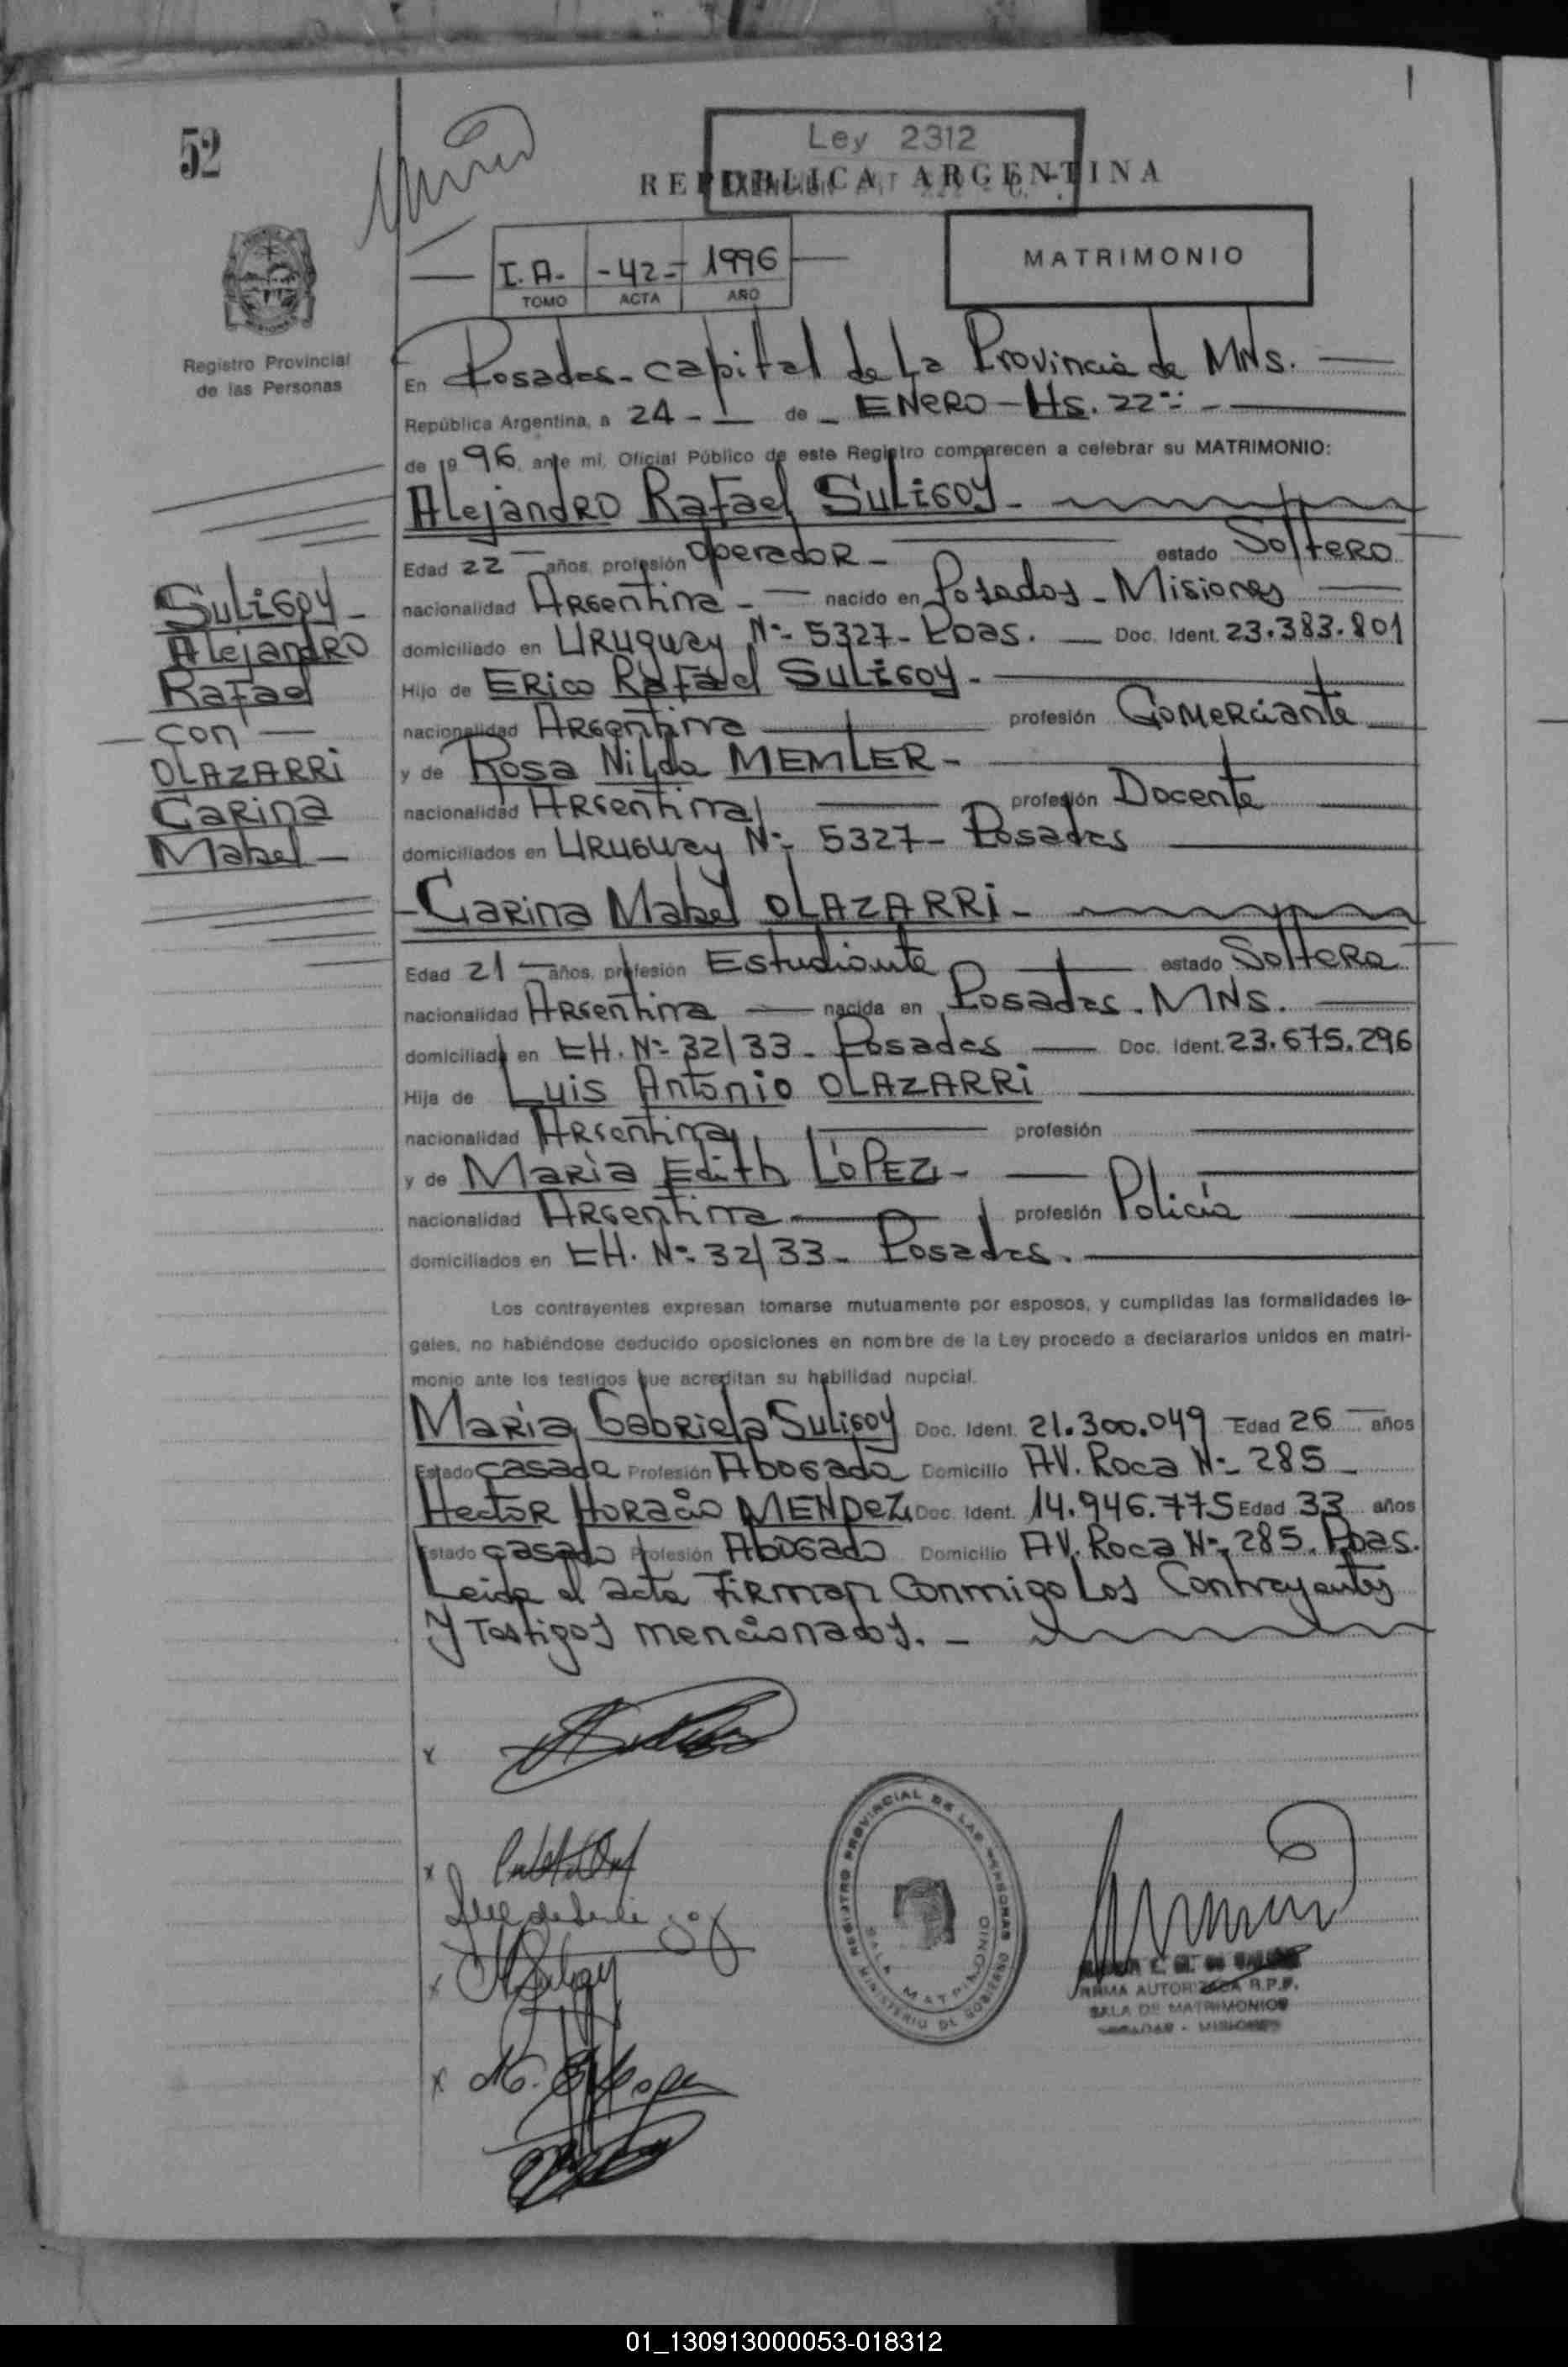 52
Ley 2312
REPUBLICA ARGENTINA
I. A- -42- 1996
TOMO ACTA AÑO
MATRIMONIO
Registro Provincial
de las Personas
En Posadas - capital de La Provincia de MNS.
República Argentina, a 24 - de - ENERO - Hs. 22
de 1996, ante mí, Oficial Público de este Registro comparecen a celebrar su MATRIMONIO:
Alejandro Rafael SULIGOY -
Edad 22 - años, profesión Operador - estado Soltero
nacionalidad Argentina - nacido en Posadas - Misiones
domiciliado en Uruguay Nº 5327 - Pdas. - Doc. Ident. 23.383.801
Hijo de Erico Rafael SULIGOY -
nacionalidad Argentina profesión Comerciante
y de Rosa Nilda MEMLER -
nacionalidad Argentina profesión Docente
domiciliados en Uruguay Nº 5327 - Posadas
SULIGOY -
Alejandro
Rafael
- con -
OLAZARRI
Carina
Mabel -
- Carina Mabel OLAZARRI -
Edad 21 - años, profesión Estudiante estado Soltera
nacionalidad Argentina - nacida en Posadas - MNS.
domiciliada en CH. Nº 32/33 - Posadas - Doc. Ident. 23.675.296
Hija de Luis Antonio OLAZARRI
nacionalidad Argentina profesión
y de María Edith LÓPEZ -
nacionalidad Argentina profesión Policía
domiciliados en CH. Nº 32/33 - Posadas.
Los contrayentes expresan tomarse mutuamente por esposos, y cumplidas las formalidades le-
gales, no habiéndose deducido oposiciones en nombre de la Ley procedo a declararlos unidos en matri-
monio ante los testigos que acreditan su habilidad nupcial.
María Gabriela Suligoy Doc. Ident. 21.300.049 Edad 26 - años
Estado casada Profesión Abogada Domicilio AV. Roca Nº 285 -
Hector Horacio MENDEZ Doc. Ident. 14.946.775 Edad 33 años
Estado casado Profesión Abogado Domicilio AV. Roca Nº 285. Pdas.
Leida el acta Firman Conmigo Los Contrayentes
y Testigos mencionados. -
x
x
x
x
REGISTRO PROVINCIAL DE LAS PERSONAS
MINISTERIO DE GOBIERNO
SALA MATRIMONIO
FIRMA AUTORIZADA R.P.P.
SALA DE MATRIMONIOS
POSADAS - MISIONES
01_130913000053-018312